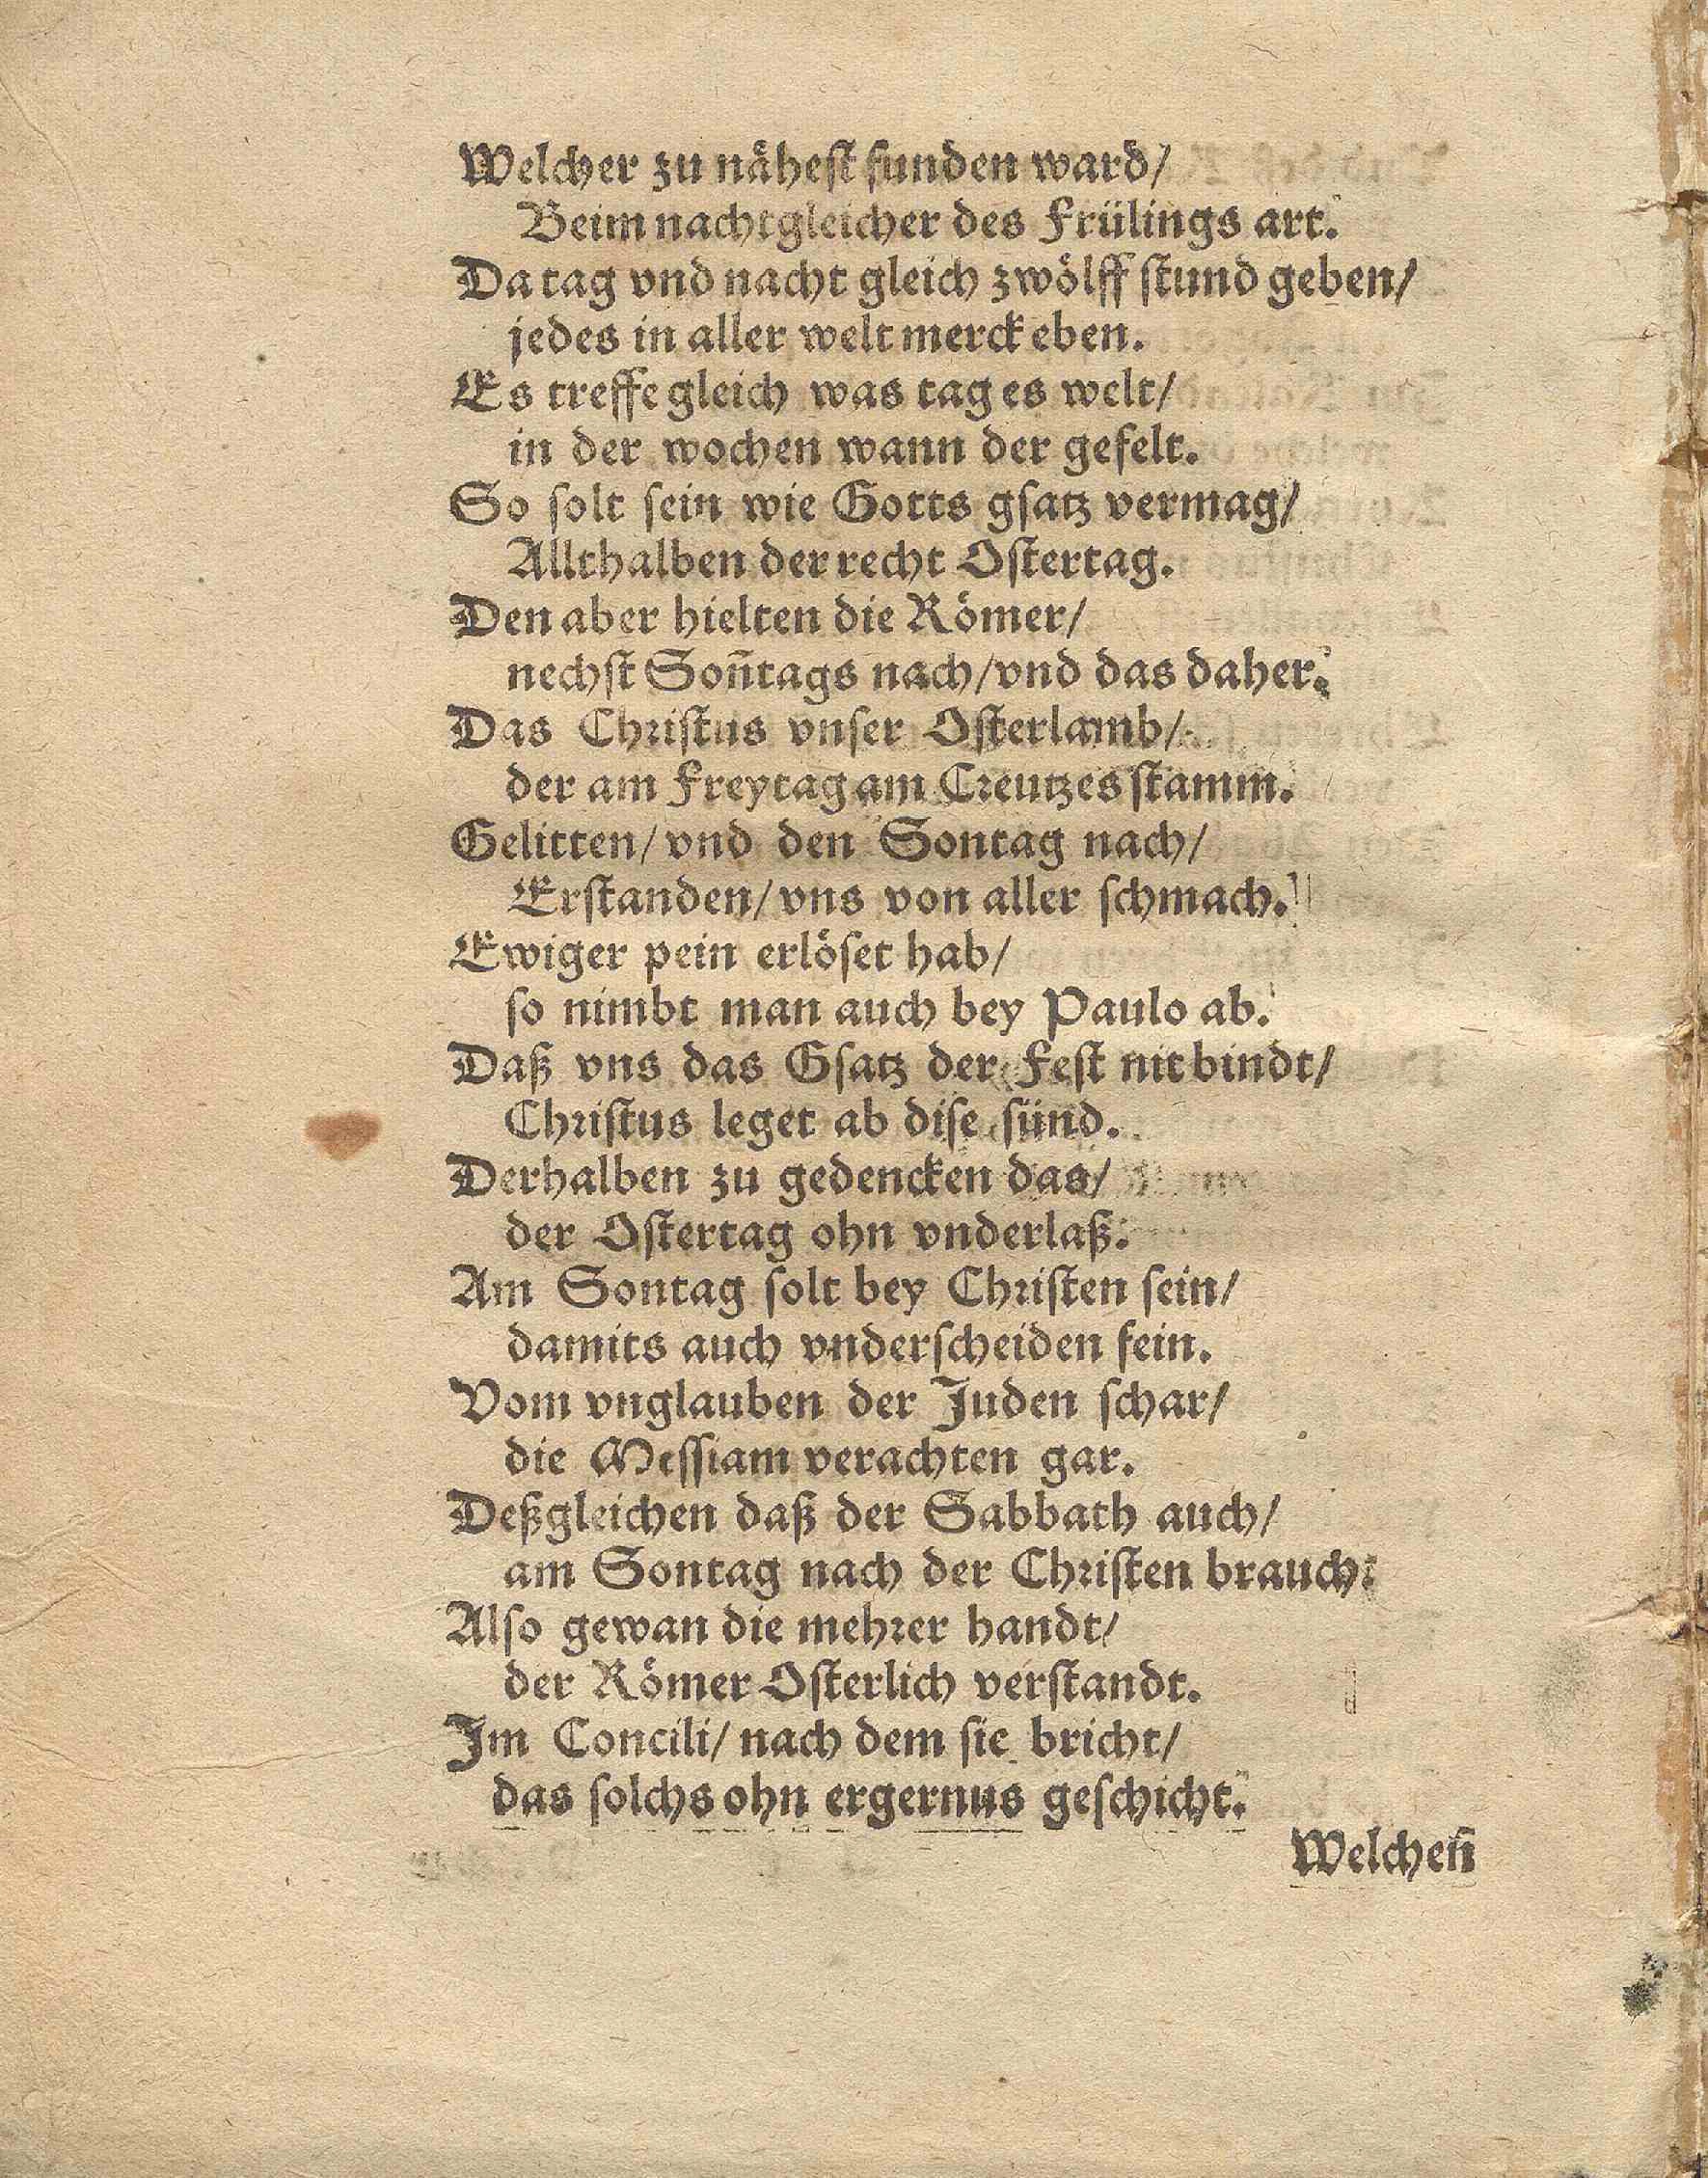 Welcher zu nåheſt funden ward/
Beim nachtgleicher des Frülings art.
Da tag vnd nacht gleich zwölff ſtund geben/
jedes in aller welt merck eben.
Es treffe gleich was tag es welt/
in der wochen wann der gefelt.
So ſolt ſein wie Gotts gſatz vermag/
Allthalben der recht Oſtertag.
Den aber hielten die Römer/
nechſt Soñtags nach/vnd das daher.
Das Chriſtus vnſer Oſterlamb/
der am Freytag am Creutzes ſtamm.
Gelitten/vnd den Sontag nach/
Erſtanden/vns von aller ſchmach.
Ewiger pein erlöſet hab/
ſo nimbt man auch bey Paulo ab.
Daß vns das Gſatz der Feſt nit bindt/
Chriſtus leget ab diſe ſünd.
Derhalben zu gedencken das/
der Oſtertag ohn vnderlaß.
Am Sontag ſolt bey Chriſten ſein/
damits auch vnderſcheiden fein.
Vom vnglauben der Juden ſchar/
die Meſſiam verachten gar.
Deßgleichen daß der Sabbath auch/
am Sontag nach der Chriſten brauch.
Alſo gewan die mehrer handt/
der Römer Oſterlich verſtandt.
Im Concili/nach dem ſie bricht/
das ſolchs ohn ergernus geſchicht.
Welchen